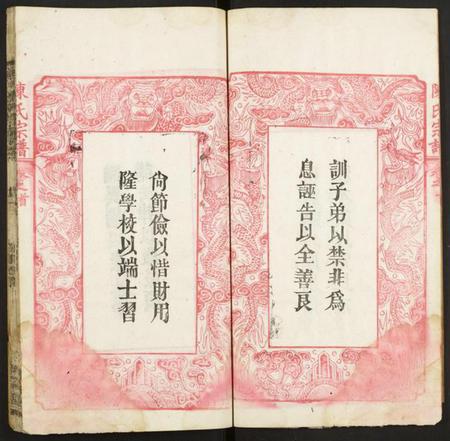 陳氏宗譜
訓子弟以禁非為
息誣告以全善良
尚節儉以惜財用
隆學校以端士習
陳氏宗譜
卷之首